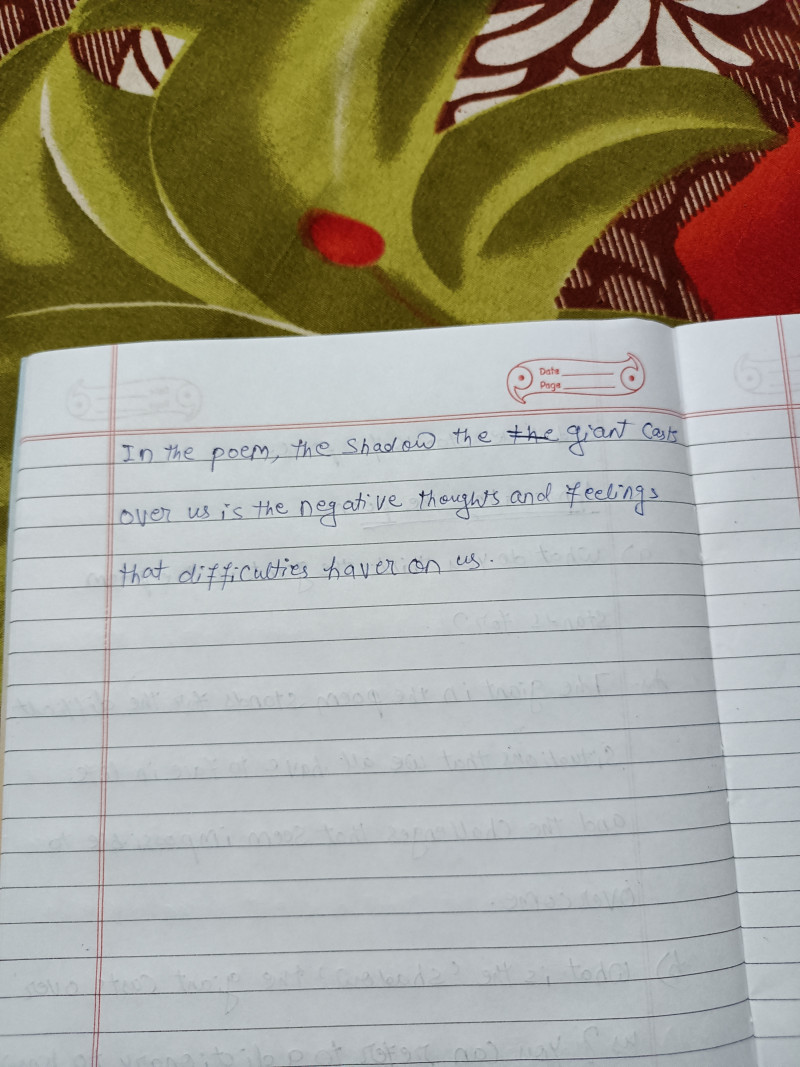 Date
Page
In the poem, the shadow the the giant casts
over us is the negative thoughts and feelings
that difficulties haver on us.